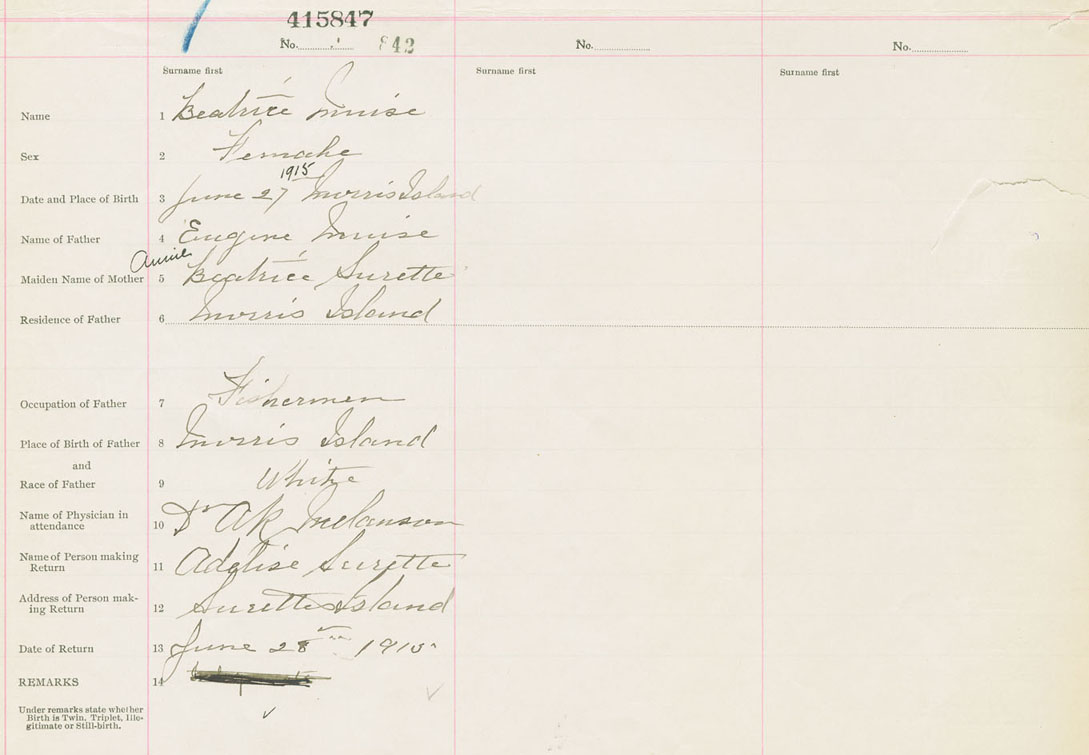 415847
No. 842 No. No.
Surname first Surname first Surname first
Name 1 Beatrice Muise
Sex 2 Female
1915
Date and Place of Birth 3 June 27 Morris Island
Name of Father 4 Eugene Muise
Annie
Maiden Name of Mother 5 Beatrice Surette
Residence of Father 6 Morris Island
Occupation of Father 7 Fishermen
Place of Birth of Father 8 Morris Island
and
Race of Father 9 White
Name of Physician in
attendance 10 Dr AR Melanson
Name of Person making
Return 11 Adelise Surette
Address of Person mak-
ing Return 12 Surettes Island
Date of Return 13 June 28 1915
REMARKS 14
Under remarks state whether
Birth is Twin, Triplet, Ille-
gitimate or Still-birth.